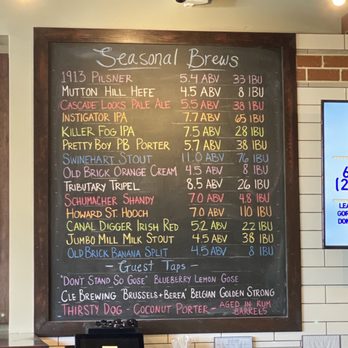 Seasonal Brews
1913 Pilsner 5.4 ABV 33 IBU
Mutton Hill Hefe 4.5 ABV 8 IBU
Cascade Locks Pale Ale 5.5 ABV 38 IBU
Instigator IPA 7.7 ABV 65 IBU
Killer Fog IPA 7.5 ABV 28 IBU
Pretty Boy PB Porter 5.7 ABV 38 IBU
Swinehart Stout 11.0 ABV 76 IBU
Old Brick Orange Cream 4.5 ABV 8 IBU
Tributary Tripel 8.5 ABV 26 IBU
Schumacher Shandy 7.0 ABV 48 IBU
Howard St. Hooch 7.0 ABV 110 IBU
Canal Digger Irish Red 5.2 ABV 22 IBU
Jumbo Mill Milk Stout 4.5 ABV 38 IBU
Old Brick Banana Split 4.5 ABV 8 IBU
Guest Taps
"Don't Stand So Gose" Blueberry Lemon Gose
Cle Brewing "Brussels + Berea" Belgian Golden Strong
Thirsty Dog - Coconut Porter - Aged in Rum Barrels